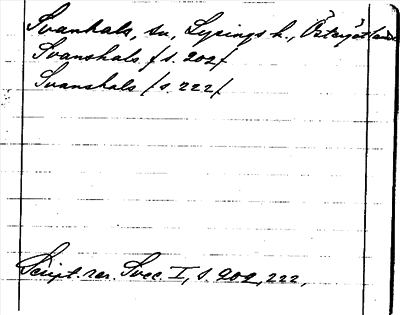 Svanhals, sn, Lysings h., Östergötland
Svanshals /s. 202/
Svanshals /s. 222/
Script. rer. Svec. I, s. 202, 222,